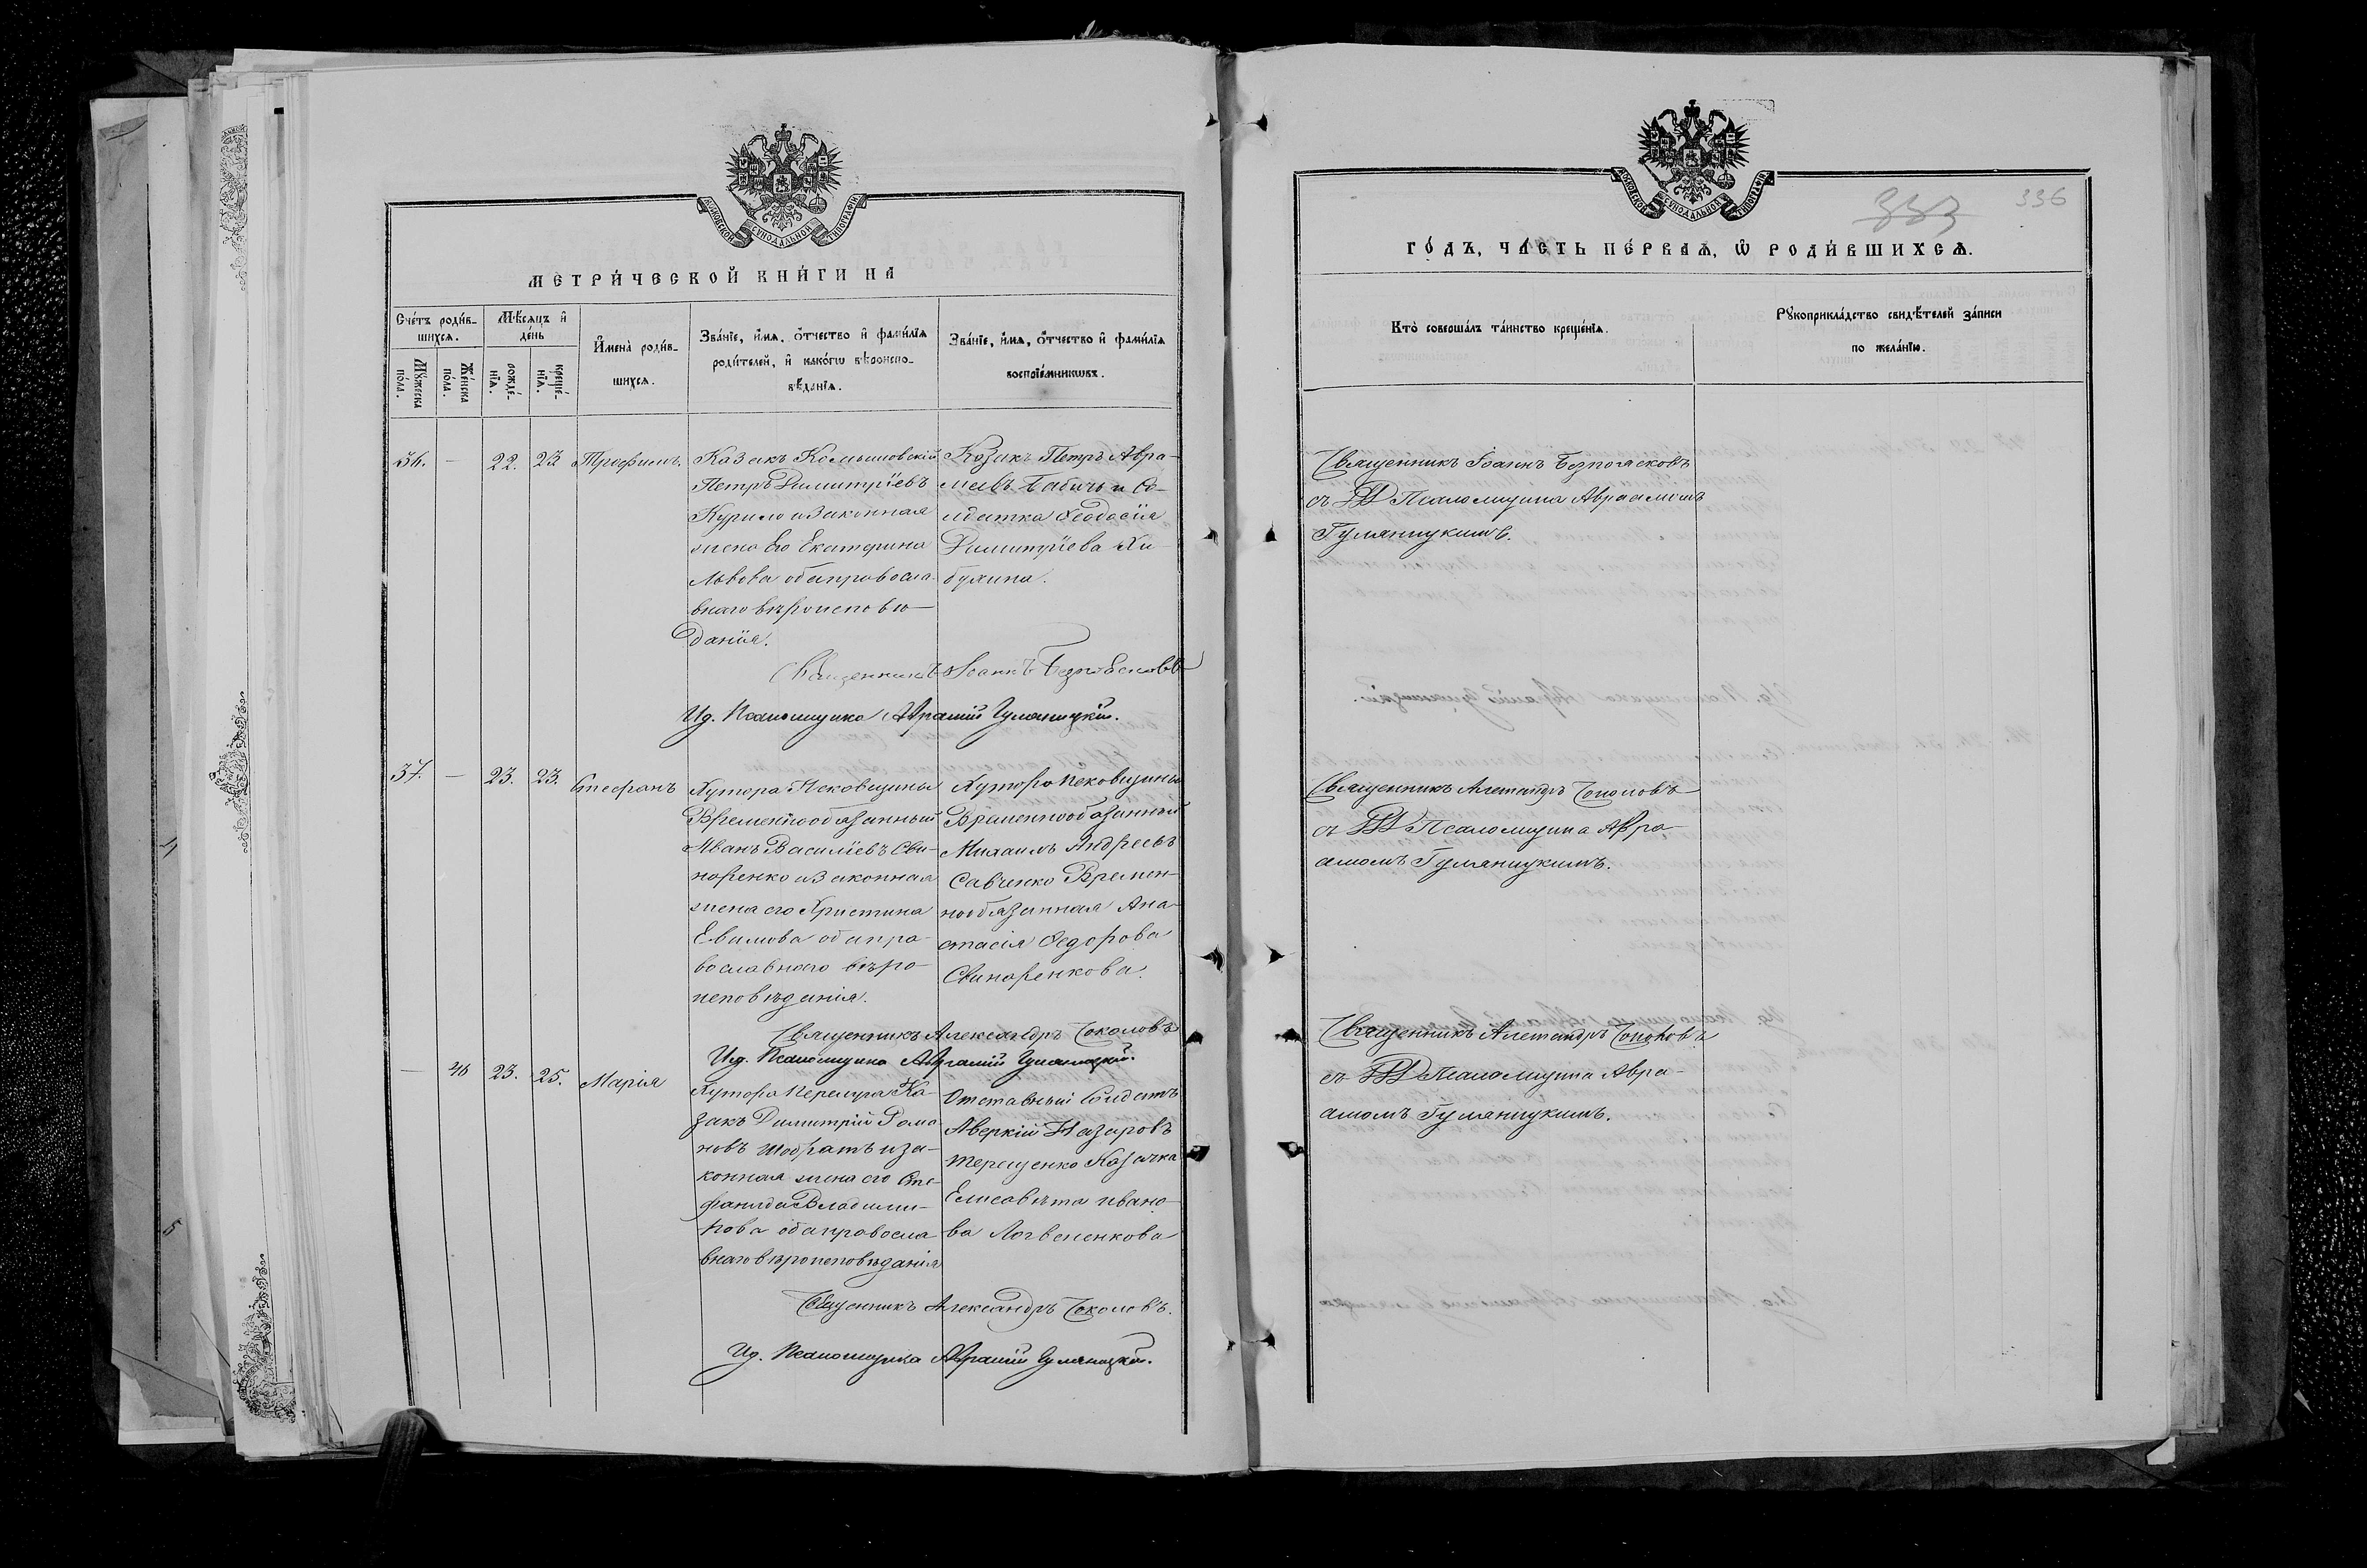 МОСКОВСКОЙ СѴНОДАЛЬНОЙ ТИПОГРАФІИ
МЕТРИ́ЧЕСКОЙ КНИ́ГИ НА
Сче́тъ роди́в-
шихсѧ.
Мѣ́сѧцъ и҆
де́нь
И҆мена̀ роди́в-
шихсѧ.
Зва́нїе, и҆́мѧ, ѻ҆́тчество и҆ фамѝлїѧ
роди́телей, и҆ како́гѡ вѣроиспо-
вѣ́данїѧ.
Зва́нїе, и҆́мѧ, ѻ҆́тчество и҆ фамѝлїѧ
воспрїе́мникѡвъ.
Мꙋ́жеска
по́ла.
Же́нска
по́ла.
рожде́-
нїѧ.
креще́-
нїѧ.
36. — 22. 23 Трофимъ.
Казакъ
Петръ Димитріевъ
Курило и законная
жена его Екатерина
Львова оба правосла-
внаго вѣроисповѣ-
данія.
Козакъ Петръ Авра-
мовъ Бабичъ и Со-
лдатка Ѳеодосія
Димитріева
Священникъ Іоаннъ Безпоясковъ
Ид. Псаломщика Аврамій Гуляницкій.
37. — 23. 23. Стефанъ
Хутора Пековщины
Временнообязанный
Иванъ Василіевъ Сви-
норенко и законная
жена его Христина
Евимова оба пра-
вославнаго вѣро-
исповѣданія.
Хутора Пековщины
Временнообязанный
Михаилъ Андреевъ
Савченко Времен-
нообязанная Ана-
стасія Ѳедорова
Свинаренкова.
Священникъ Александръ Соколовъ
Ид. Псаломщика Аврамій Гуляницкій.
— 23. 25. Марія
Хутора Ка-
закъ Димитрій Рома-
новъ и за-
конная жена его Сте-
фанида Владими-
рова оба правосла-
внаго вѣроисповѣданія
Отставный Солдатъ
Аверкій Назаровъ
Терещенко Казачка
Елисавета Ивано-
ва Логвененкова
Священникъ Александръ Соколовъ.
Ид. Псаломщика Аврамій Гуляницкій.
МОСКОВСКОЙ СѴНОДАЛЬНОЙ ТИПОГРАФІИ
336
ГО́ДЪ, ЧА́СТЬ ПЕ́РВАѦ, Ѽ РОДИ́ВШИХСѦ.
Кто̀ соверша́лъ та́инство креще́нїѧ.
Рꙋкоприкла́дство свидѣ́телей за́писи
по жела́нїю.
Священникъ Іоаннъ Безпоясковъ
съ Псаломщика Авраамомъ
Гуляницкимъ.
Священникъ Александръ Соколовъ
съ Псаломщика Авра-
амомъ Гуляницкимъ.
Священникъ Александръ Соколовъ
съ Псаломщика Авра-
амомъ Гуляницкимъ.